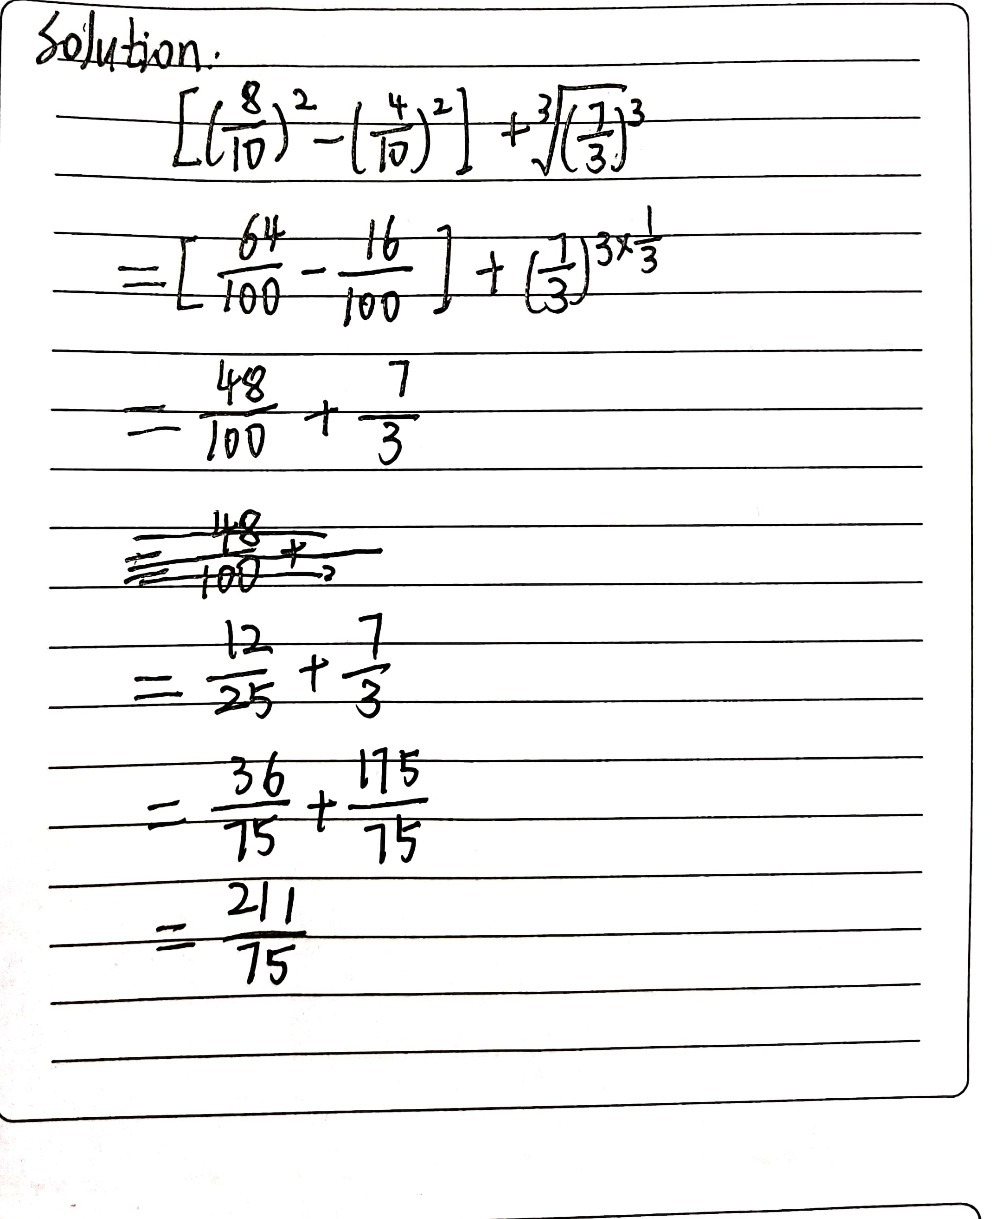 Solution:
[(8/10)² - (4/10)²] + ∛(7/3)³
= [64/100 - 16/100] + (7/3)^(3×1/3)
= 48/100 + 7/3
= 48/100 +
= 12/25 + 7/3
= 36/75 + 175/75
= 211/75